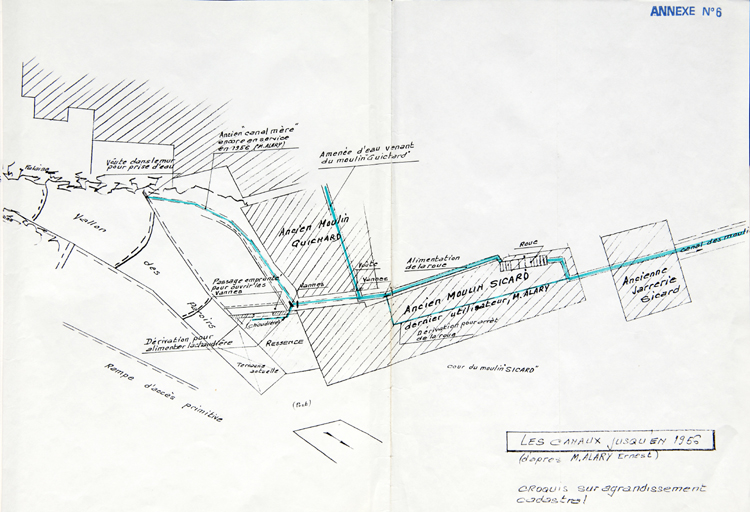 ANNEXE N°6
Ancien "canal mère"
encore en service
en 1956 (M. ALARY)
Amenée d'eau venant
du moulin "Guichard"
Voûte dans le mur
pour prise d'eau
Vallon
des
Paroirs
Ancien Moulin
GUICHARD
Passage emprunté
pour ouvrir les
Vannes
Vannes
Voûte
Vannes
Alimentation
de la roue
Roue
Ancien MOULIN SICARD
dernier utilisateur, M. ALARY
Dérivation pour arrêt
de la roue
canal des mouli
Ancienne
Jarrerie
Sicard
Dérivation pour
alimenter la chaudière
(chaudière)
RESSENCE
Terrasse
actuelle
Rampe d'accès primitive
cour du moulin "SICARD"
LES CANAUX JUSQU'EN 1956
(d'après M. ALARY Ernest)
CROQUIS sur agrandissement
cadastral